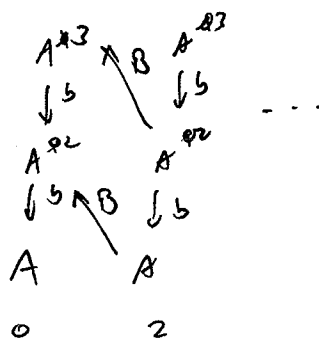 A^{⊗3} B A^{⊗3}
b b
...
A^{⊗2} A^{⊗2}
b B b
A A
0 2